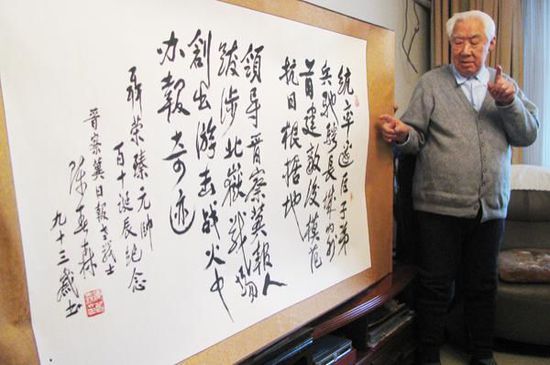 统率边区子弟
兵驰骋长城内外
首建敌后模范
抗日根据地
领导晋察冀报人
跋涉北嶽战场
創出游击战火中
办報奇迹
聂荣臻元帅
百十诞辰纪念
晋察冀日報老战士
陈春森
九十三岁书